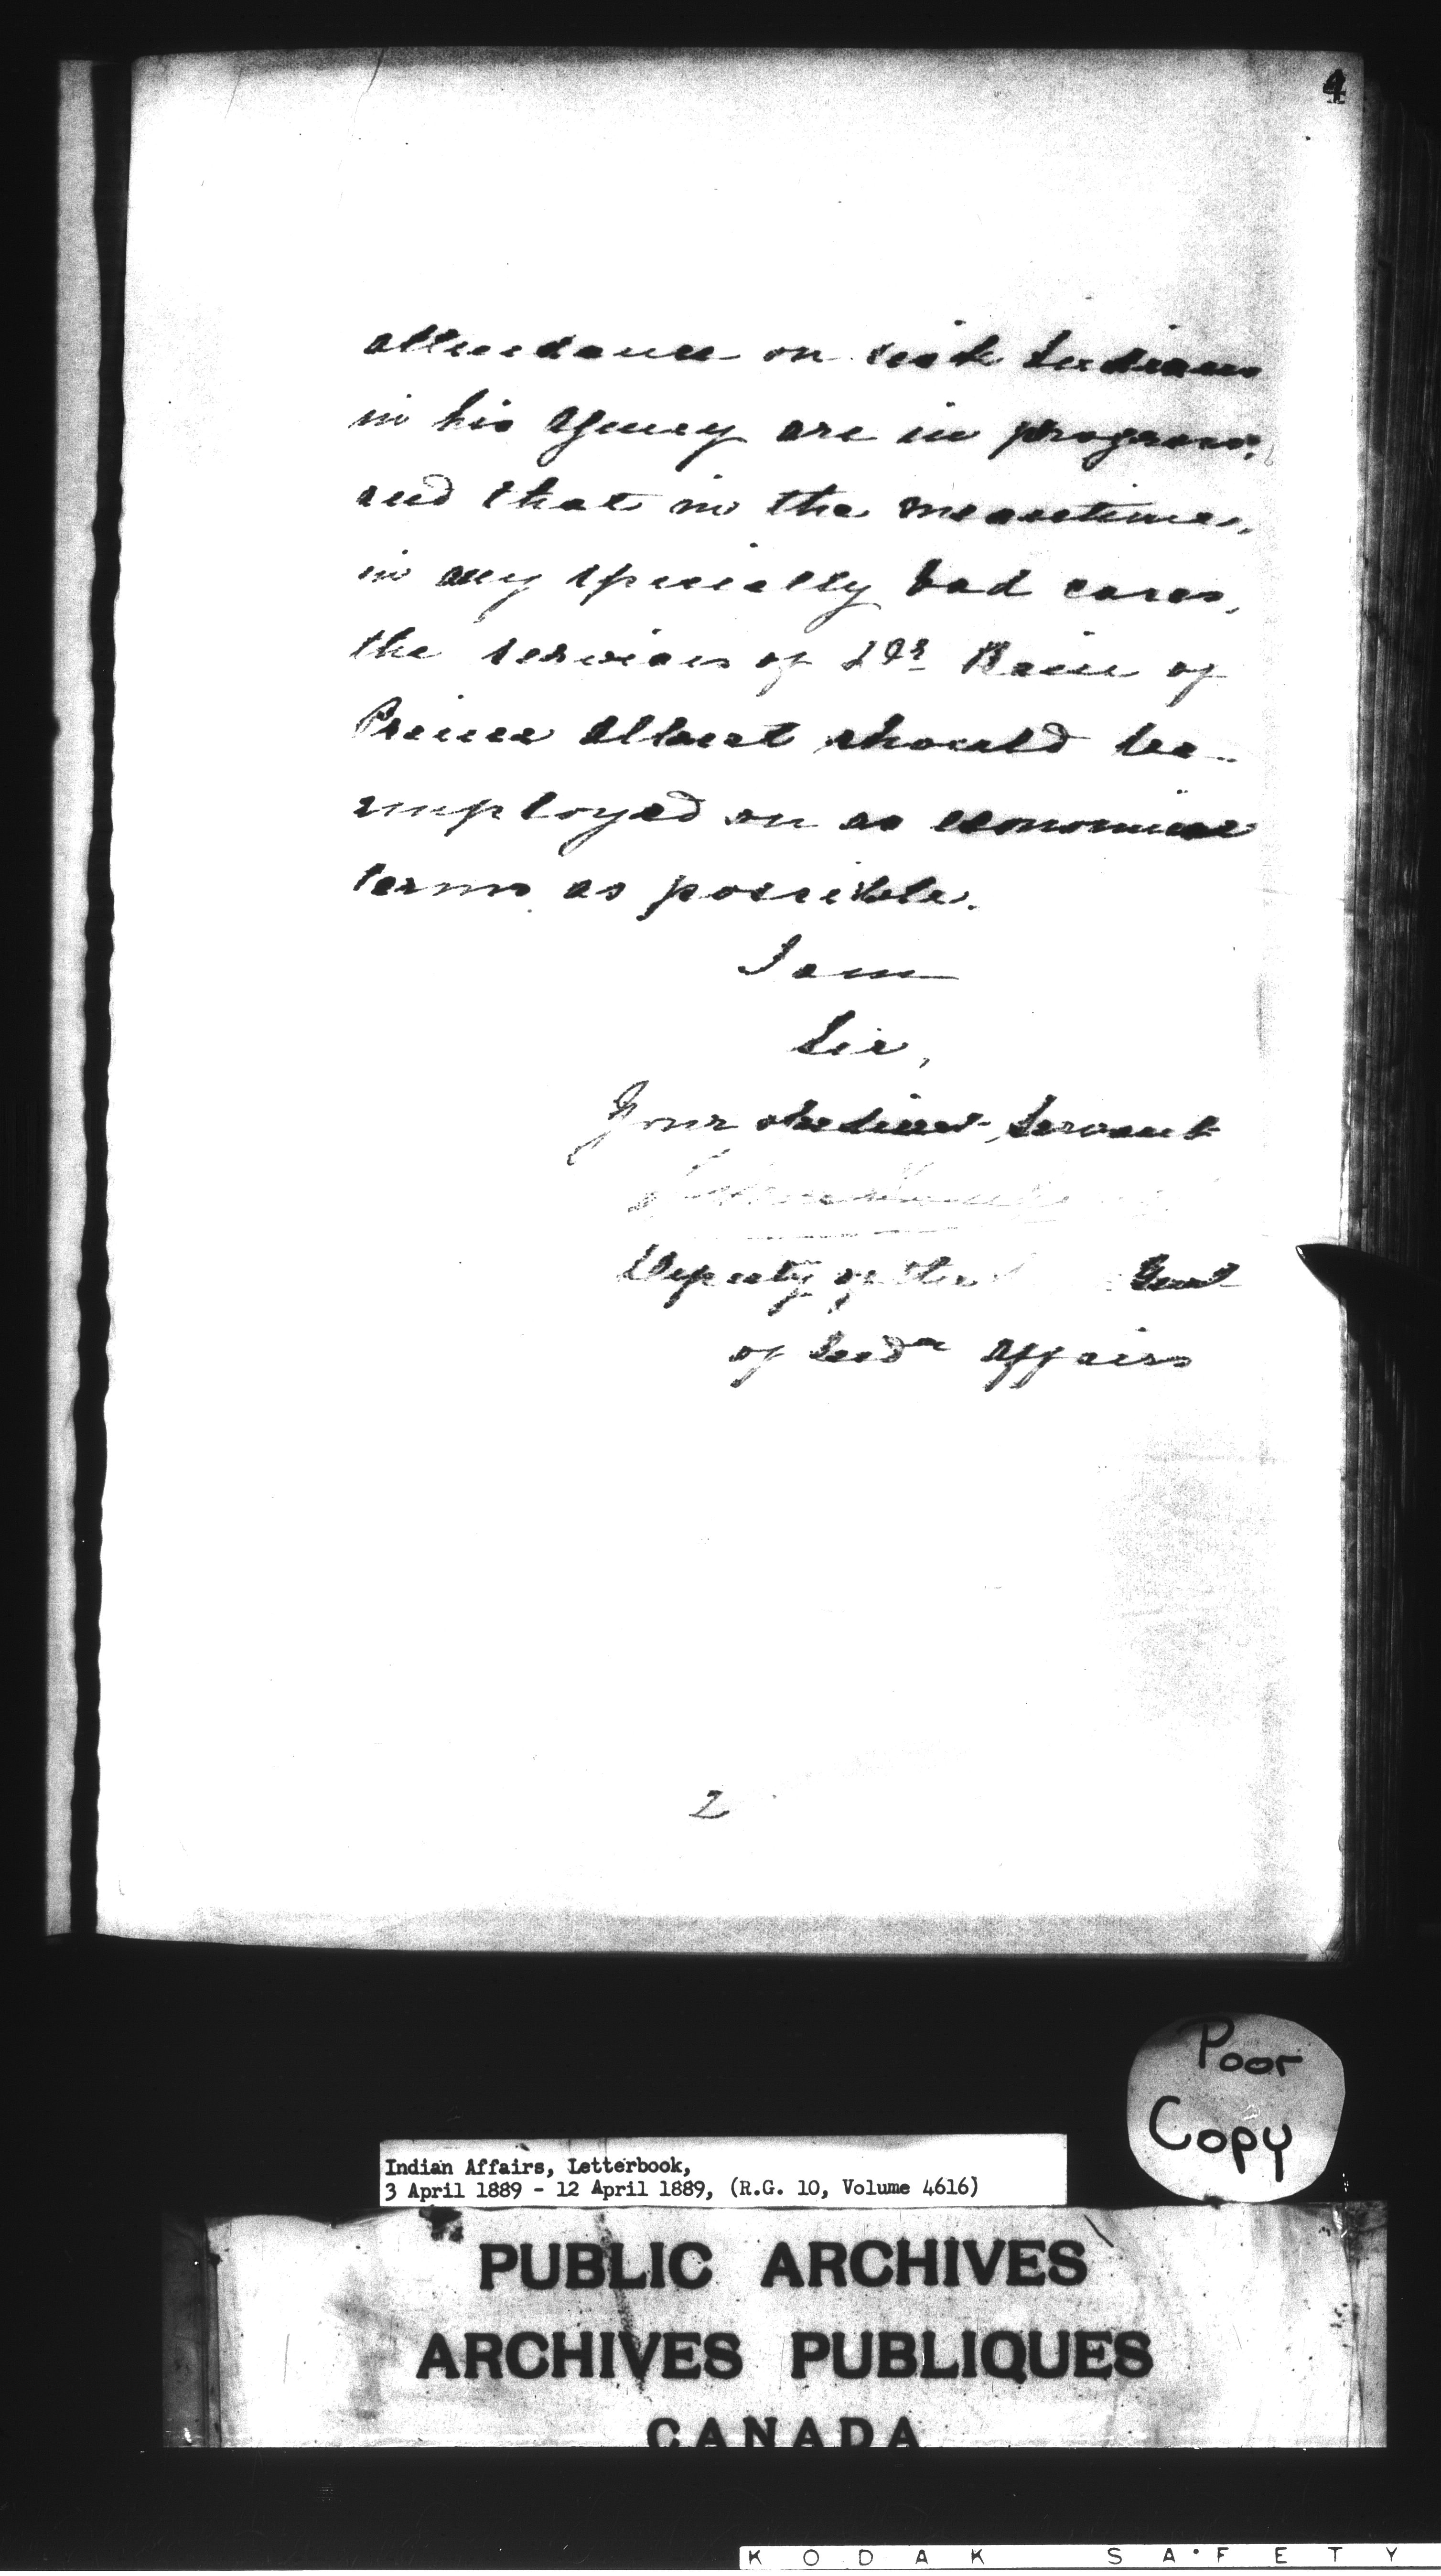 4
attendance on sick Indians
in his Agency are in progress,
and that in the meantime,
in any specially bad cases,
the services of Dr Bain of
Prince Albert should be
employed on as economical
terms as possible.
I am
Sir,
Your obedient Servant
Deputy of the Genl
of Indn Affairs
2
Poor
Copy
Indian Affairs, Letterbook,
3 April 1889 - 12 April 1889, (R.G. 10, Volume 4616)
PUBLIC ARCHIVES
ARCHIVES PUBLIQUES
CANADA
KODAK SAFETY